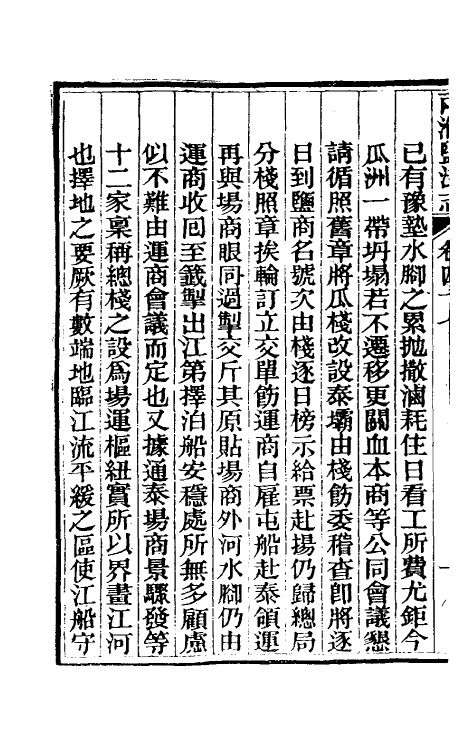 兩淮鹽法志 卷四十七
已有豫墊水腳之累拋撒滷耗住日看工所費尤鉅今
瓜洲一帶坍塌若不遷移更關血本商等公同會議懇
請循照舊章將瓜棧改設泰壩由棧飭委稽查卽將逐
日到鹽商名號次由棧逐日榜示給票赴揚仍歸總局
分棧照章挨輪訂立交單飭運商自雇屯船赴泰領運
再與場商眼同過掣交斤其原貼場商外河水腳仍由
運商收回至籤掣出江第擇泊船安穩處所無多顧慮
似不難由運商會議而定也又據通泰場商景騾發等
十二家稟稱總棧之設爲場運樞紐實所以界畫江河
也擇地之要厥有數端地臨江流平緩之區使江船守